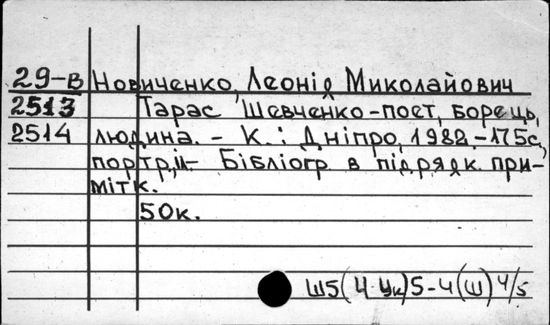 29-в Новиченко, Леонід Миколайович
2513 Тарас Шевченко-поет, борець,
2514 людина. - К.: Дніпро, 1982.-175с,
портр.,- Бібліогр. в підрядк. при-
мітк.
50к.
Ш5(4 Ук)5-4(Ш)4/5